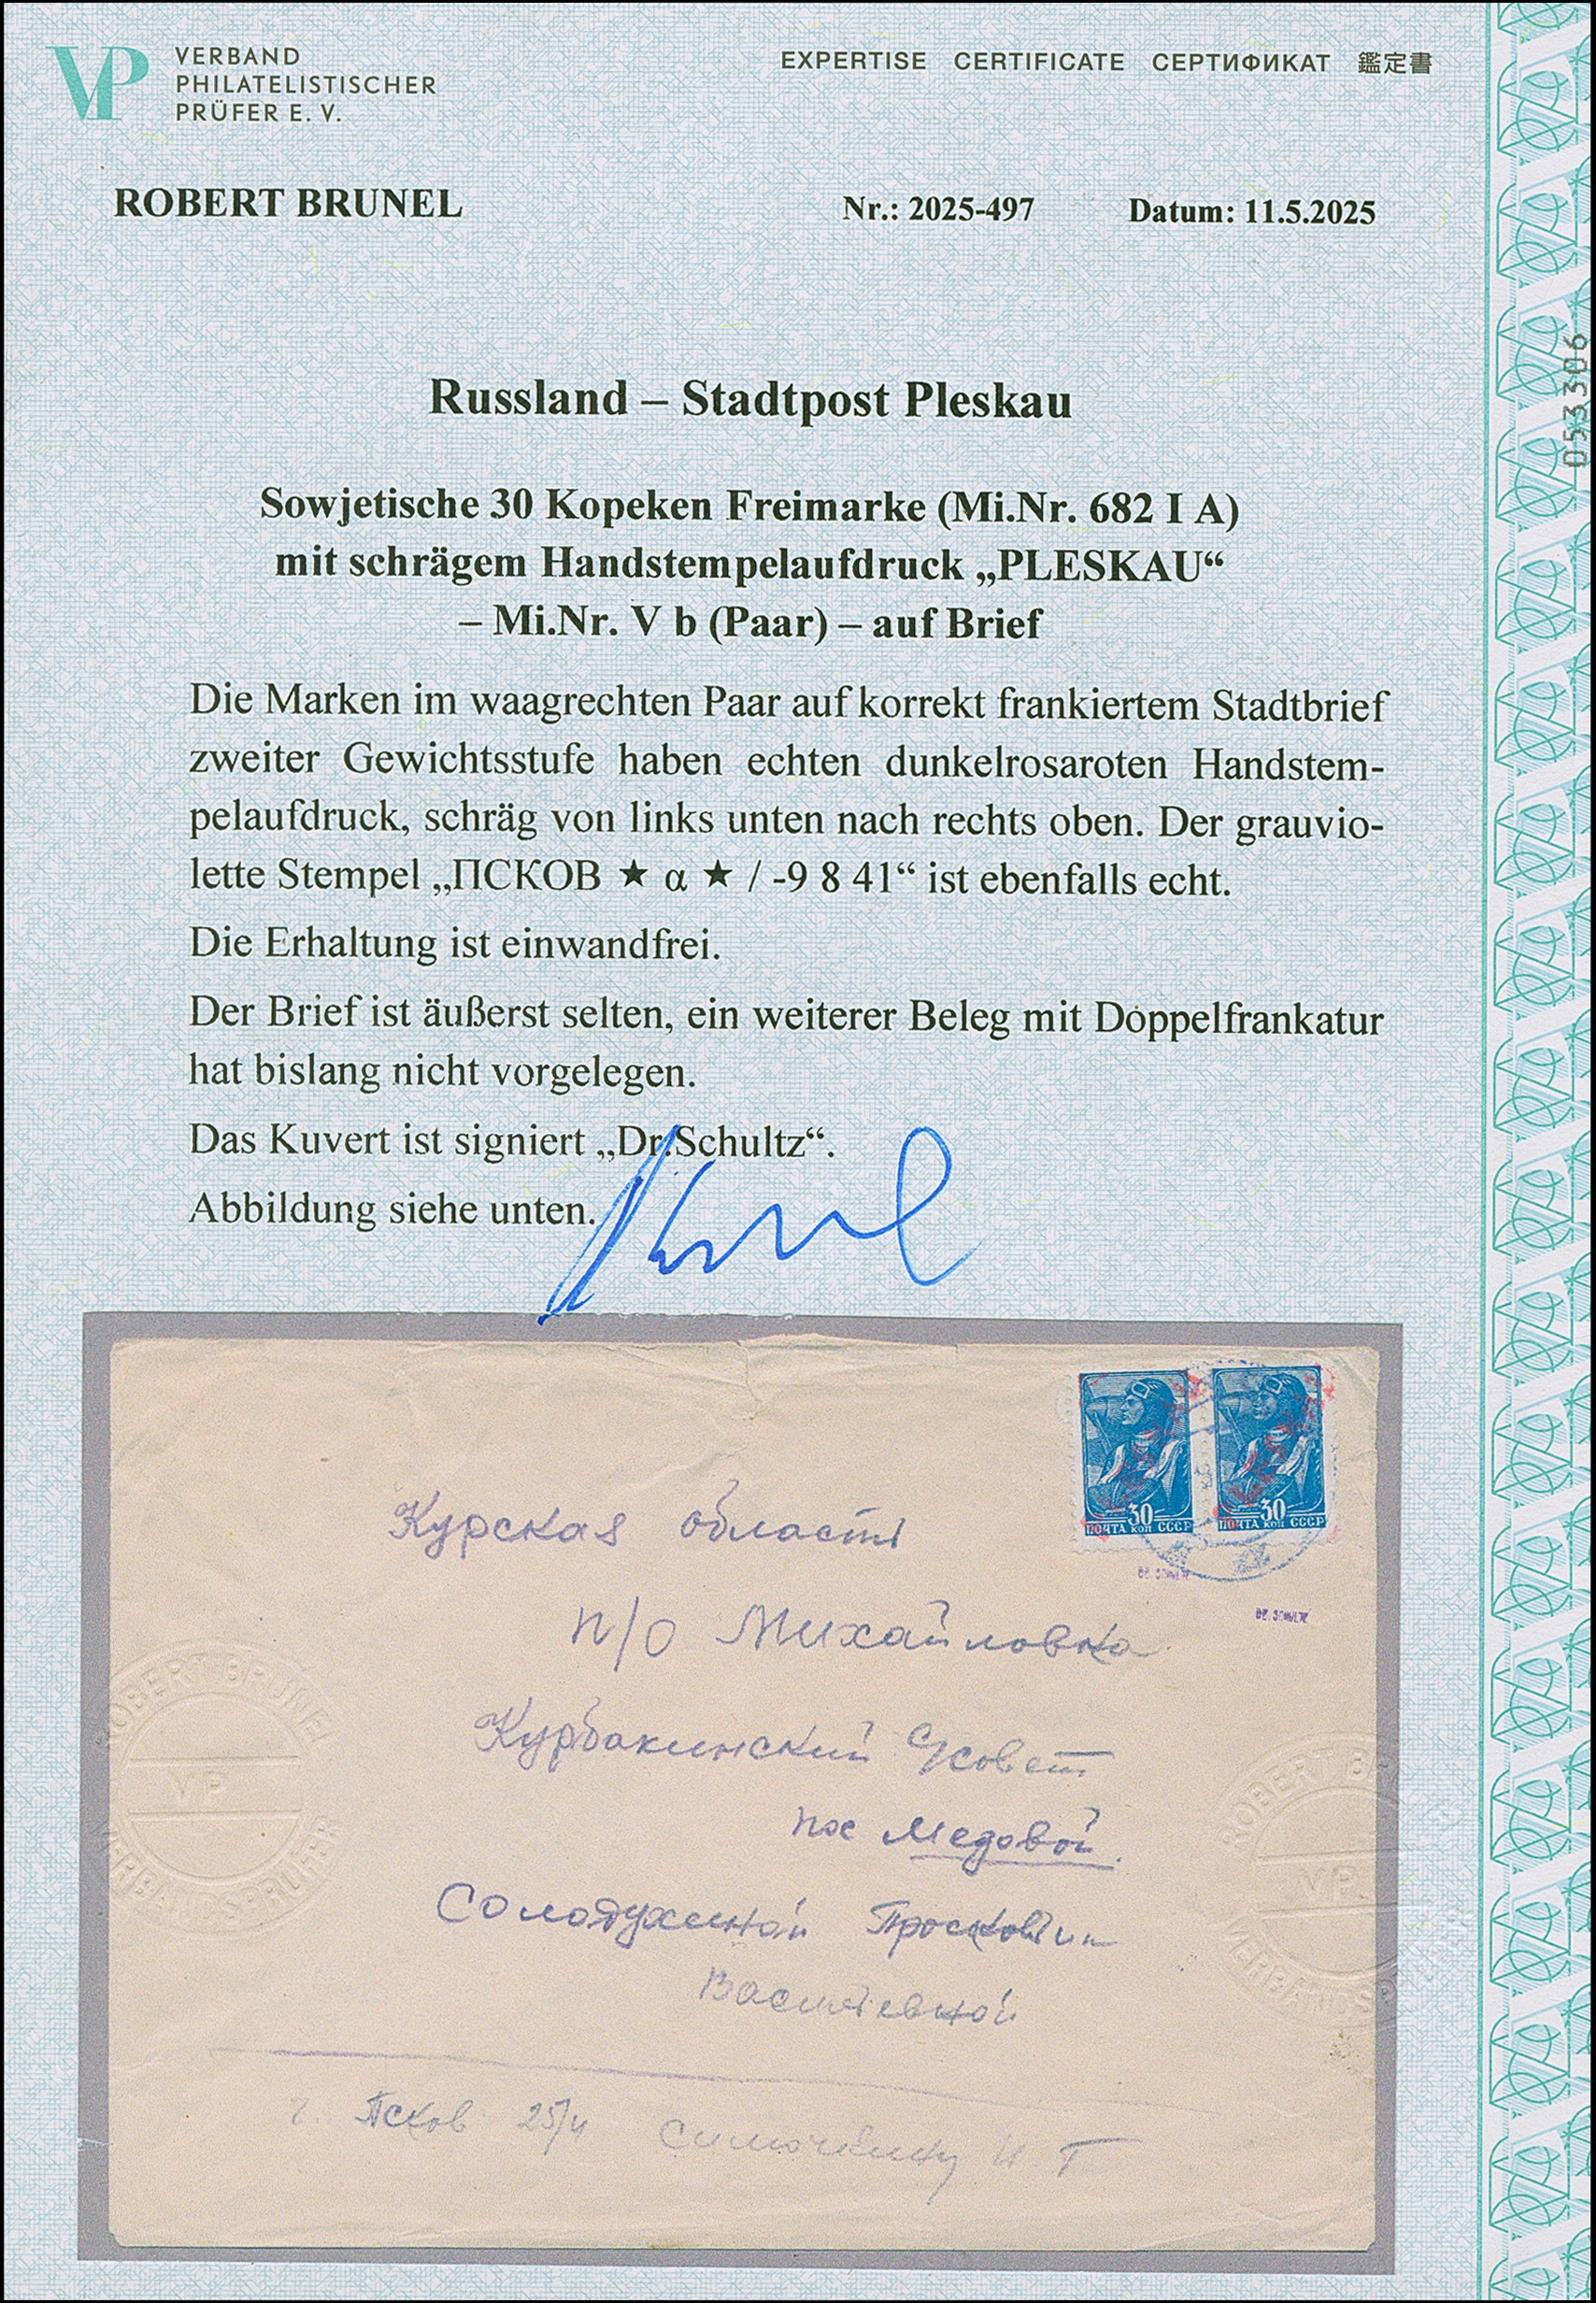 VP
VERBAND
PHILATELISTISCHER
PRÜFER E. V.
EXPERTISE CERTIFICATE СЕРТИФИКАТ 鑑定書
ROBERT BRUNEL
Nr.: 2025-497 Datum: 11.5.2025
053306
Russland – Stadtpost Pleskau
Sowjetische 30 Kopeken Freimarke (Mi.Nr. 682 I A)
mit schrägem Handstempelaufdruck „PLESKAU“
– Mi.Nr. V b (Paar) – auf Brief
Die Marken im waagrechten Paar auf korrekt frankiertem Stadtbrief
zweiter Gewichtsstufe haben echten dunkelrosaroten Handstem-
pelaufdruck, schräg von links unten nach rechts oben. Der grauvio-
lette Stempel „ПСКОВ ★ α ★ / -9 8 41“ ist ebenfalls echt.
Die Erhaltung ist einwandfrei.
Der Brief ist äußerst selten, ein weiterer Beleg mit Doppelfrankatur
hat bislang nicht vorgelegen.
Das Kuvert ist signiert „Dr.Schultz“.
Abbildung siehe unten.
30 30
ПОЧТА коп СССР ПОЧТА коп СССР
Курская область
п/о Михайловка
Курбакинский с/совет
пос Медовой.
Солодухиной Просковии
Васильевной
г. Псков 25/4
И Т
ROBERT BRUNEL
VP
VERBANDSPRÜFER
ROBERT B
VP
VERBANDSP